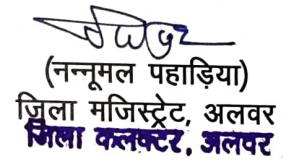 (नन्नूमल पहाड़िया)
ज़िला मजिस्ट्रेट, अलवर
जिला कलक्टर, अलवर